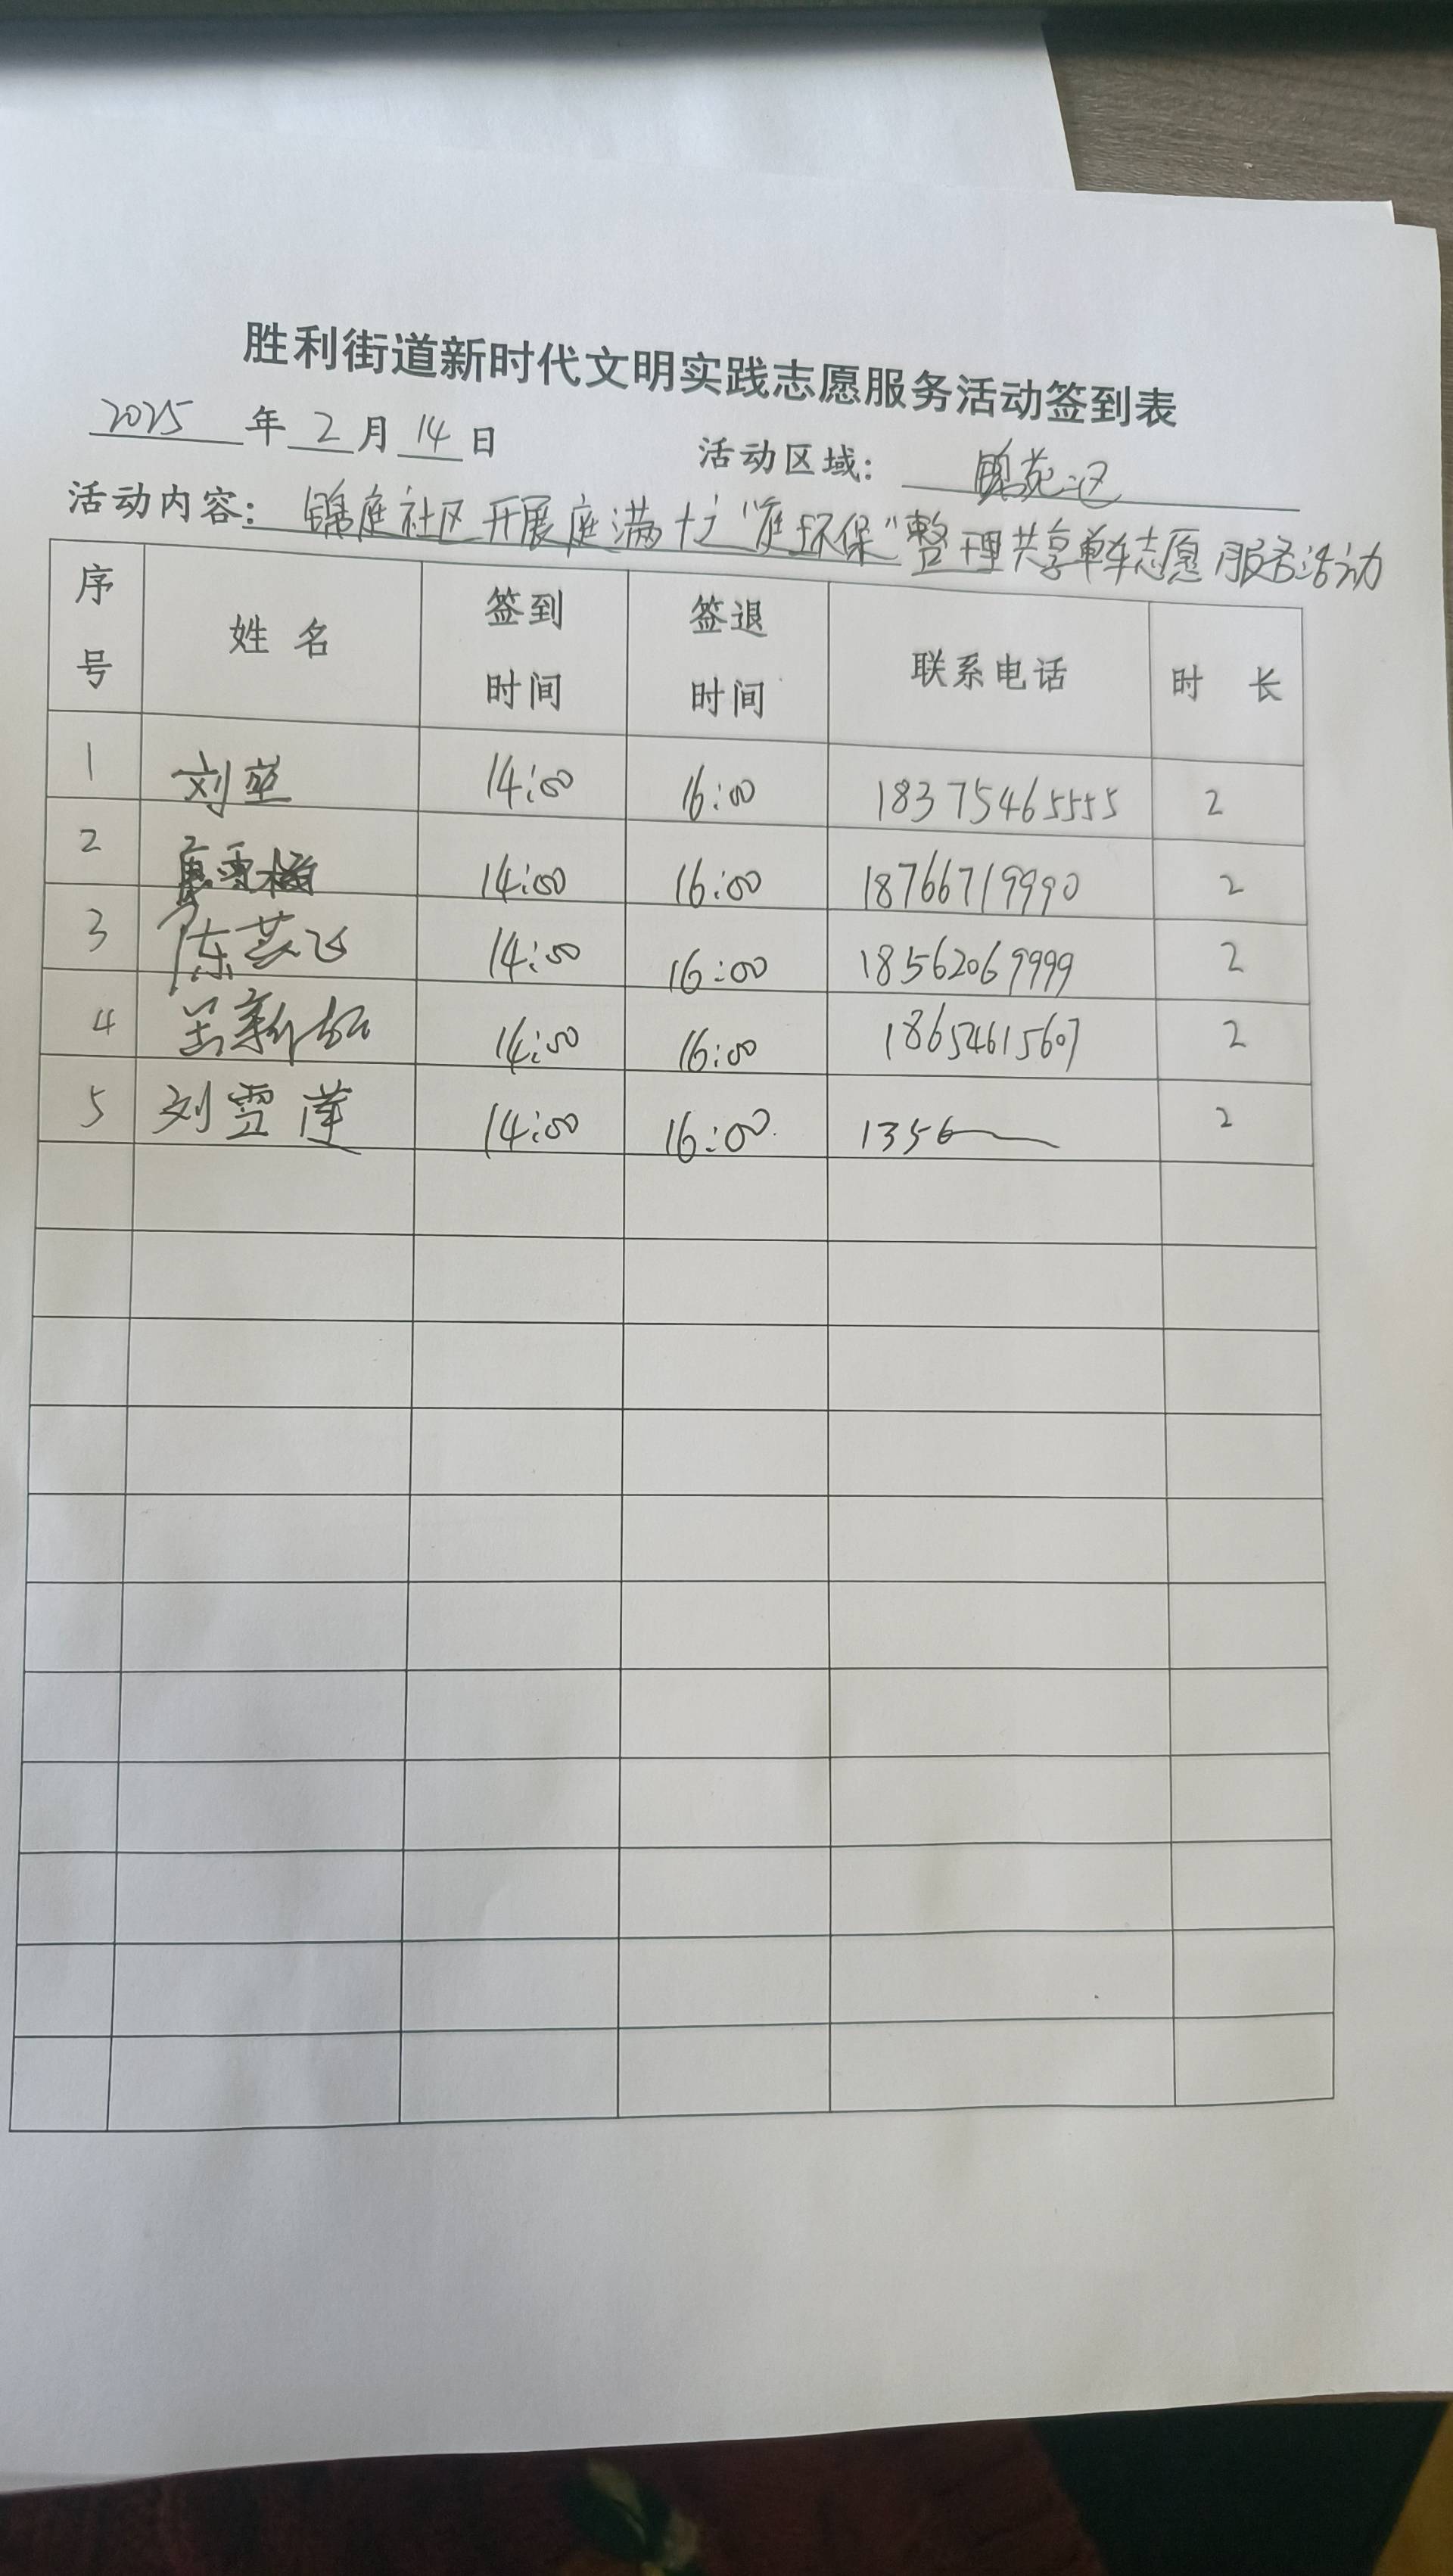 胜利街道新时代文明实践志愿服务活动签到表
2025年2月14日 活动区域: 锦苑二区
活动内容: 锦庭社区开展庭满十之"庭环保"整理共享单车志愿服务活动
序号 姓名 签到时间 签退时间 联系电话 时长
1 刘 14:00 16:00 18375465555 2
2 雪梅 14:00 16:00 18766719990 2
3 陈燕飞 14:00 16:00 18562069999 2
4 新 14:00 16:00 18654615607 2
5 刘雪莲 14:00 16:00 1356 2